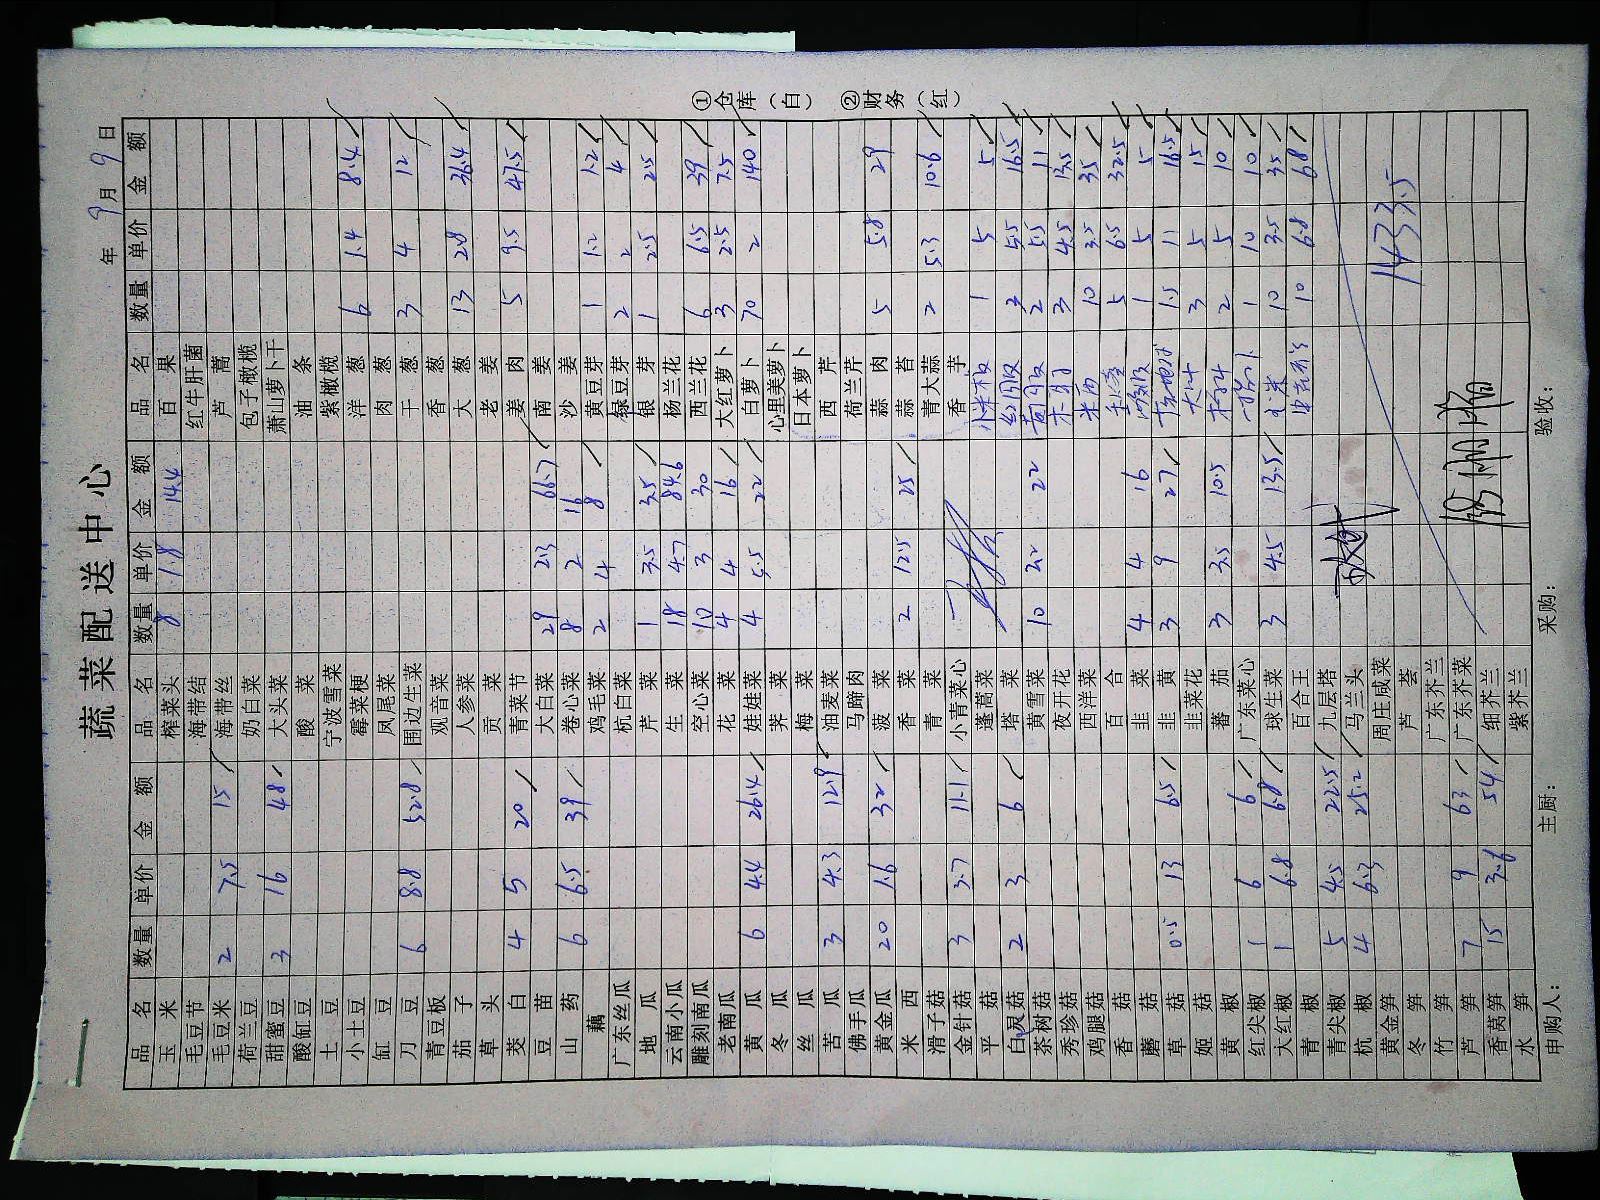 蔬菜配送中心
年 9月 9日
品名 数量 单价 金额 品名 数量 单价 金额 品名 数量 单价 金额
玉米 榨菜头 8 1.8 14.4 百果
毛豆节 海带结 红牛肝菌
毛豆米 2 7.5 15 海带丝 芦蒿
荷兰豆 奶白菜 包子橄榄
甜蜜豆 3 16 48 大头菜 萧山萝卜干
酸缸豆 酸菜 油条
土豆 宁波雪菜 紫橄榄
小土豆 霉菜梗 洋葱 6 1.4 8.4
缸豆 凤尾菜 肉葱
刀豆 6 8.8 52.8 围边生菜 干葱 3 4 12
青豆板 观音菜 香葱
茄子 人参菜 大葱 13 2.8 36.4
草头 贡菜 老姜
茭白 4 5 20 青菜节 姜肉 5 9.5 47.5
豆苗 大白菜 29 2.3 66.7 南姜
山药 6 6.5 39 卷心菜 8 2 16 沙姜
藕 鸡毛菜 2 4 8 黄豆芽 1 1.2 1.2
广东丝瓜 杭白菜 绿豆芽 2 2 4
地瓜 芹菜 1 3.5 3.5 银芽 1 2.5 2.5
云南小瓜 生菜 18 4.7 84.6 杨兰花
雕刻南瓜 空心菜 10 3 30 西兰花 6 6.5 39
老南瓜 花菜 4 4 16 大红萝卜 3 2.5 7.5
黄瓜 6 4.4 26.4 娃娃菜 4 5.5 22 白萝卜 70 2 140
冬瓜 荠菜 心里美萝卜
丝瓜 梅菜 日本萝卜
苦瓜 3 4.3 12.9 油麦菜 西芹
佛手瓜 马蹄肉 荷兰芹
黄金瓜 20 1.6 32 菠菜 蒜肉 5 5.8 29
米西 香菜 2 12.5 25 蒜苔
滑子菇 青菜 青大蒜 2 5.3 10.6
金针菇 3 3.7 11.1 小青菜心 香芋
平菇 蓬蒿菜 小米椒 1 5 5
白灵菇 2 3 6 塔菜 红圆椒 3 5.5 16.5
茶树菇 黄雪菜 10 2.2 22 黄圆椒 2 5.5 11
秀珍菇 夜开花 木耳 3 4.5 13.5
鸡腿菇 西洋菜 米西 10 3.5 35
香菇 百合 5 6.5 32.5
蘑菇 韭菜 4 4 16 1 5 5
草菇 0.5 13 6.5 韭黄 3 9 27 1.5 11 16.5
姬菇 韭菜花 大叶 3 5 15
黄椒 蕃茄 3 3.5 10.5 2 5 10
红尖椒 1 6 6 广东菜心 1 10 10
大红椒 1 6.8 6.8 球生菜 3 4.5 13.5 玉米 10 3.5 35
青椒 百合王 10 6.8 68
青尖椒 5 4.5 22.5 九层塔
杭椒 4 6.3 25.2 马兰头
黄金笋 周庄咸菜 1433.5
冬笋 芦荟
竹笋 广东芥兰
芦笋 7 9 63 广东芥菜
香莴笋 15 3.6 54 细芥兰
水笋 紫芥兰
申购人： 主厨： 采购： 验收：
①仓库（白） ②财务（红）